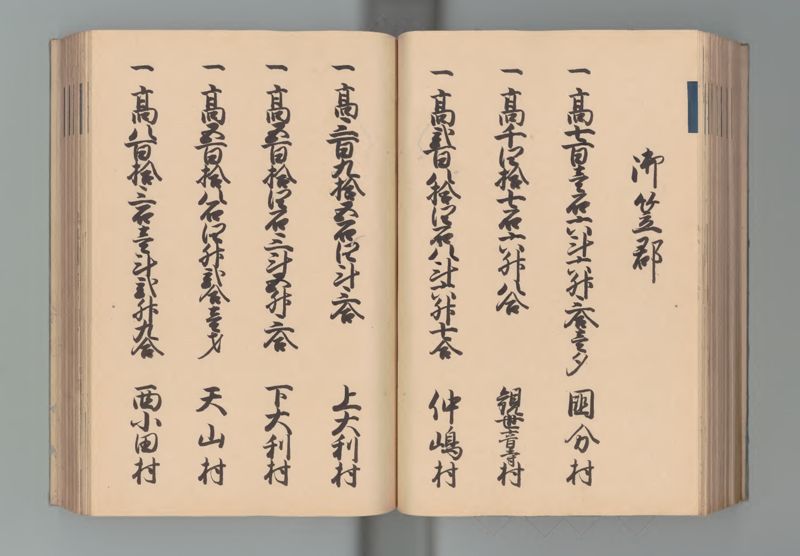 御笠郡
一高七百壱石六斗六升三合壱夕 国分村
一高千四拾七石六升八合 観世音寺村
一高弐百八拾四石八斗六升七合 仲嶋村
一高三百九拾五石四斗三合 上大利村
一高五百拾四石三斗五升三合 下大利村
一高五百拾八石四升弐合壱才 天山村
一高八百拾三石壱斗弐升九合 西小田村